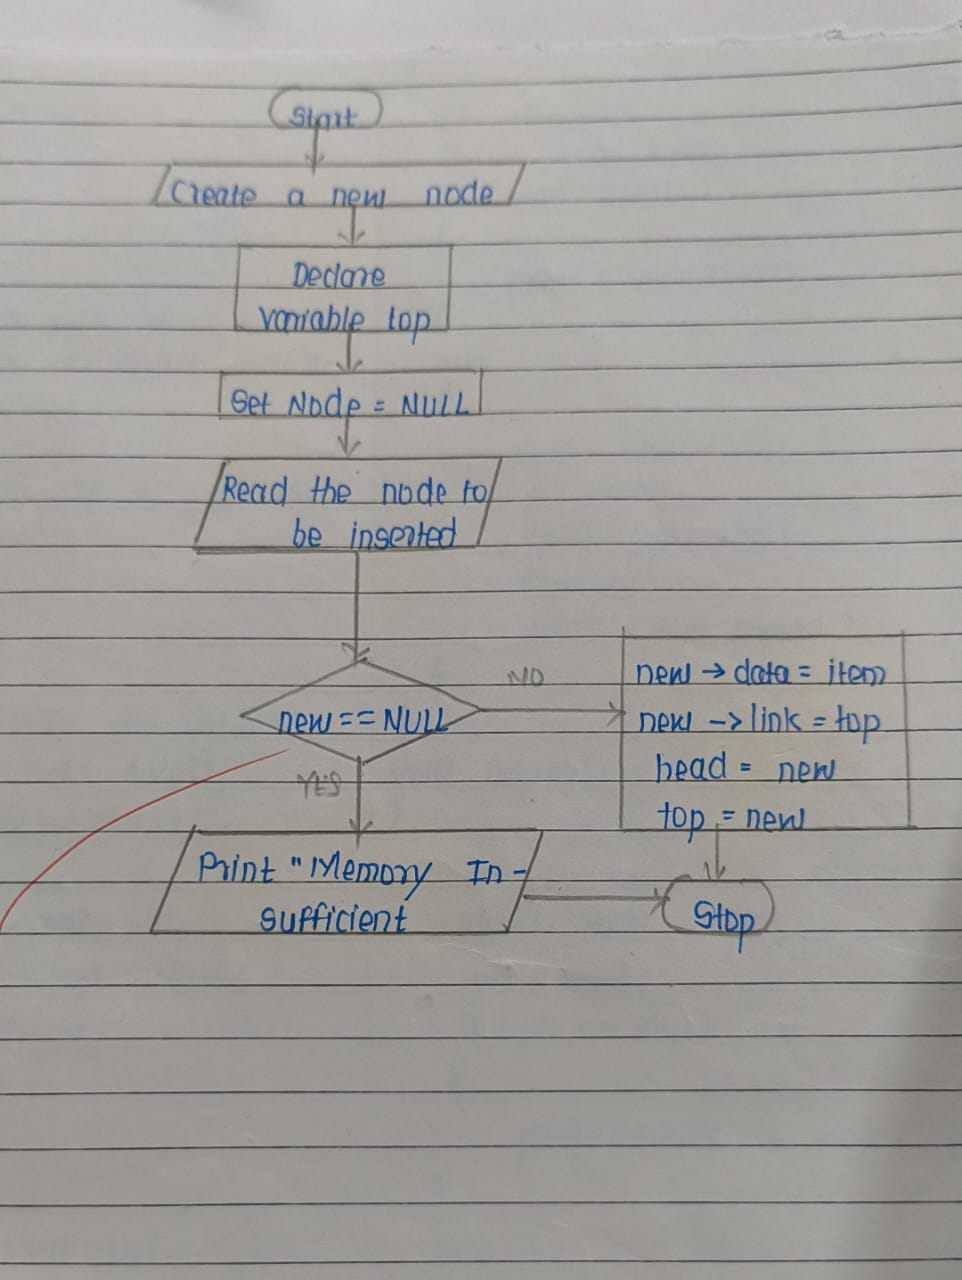 Start
Create a new node
Declare
variable top
Set Node = NULL
Read the node to
be inserted
new == NULL
NO
new → data = item
new -> link = top
head = new
top = new
YES
Print "Memory In-
sufficient
Stop